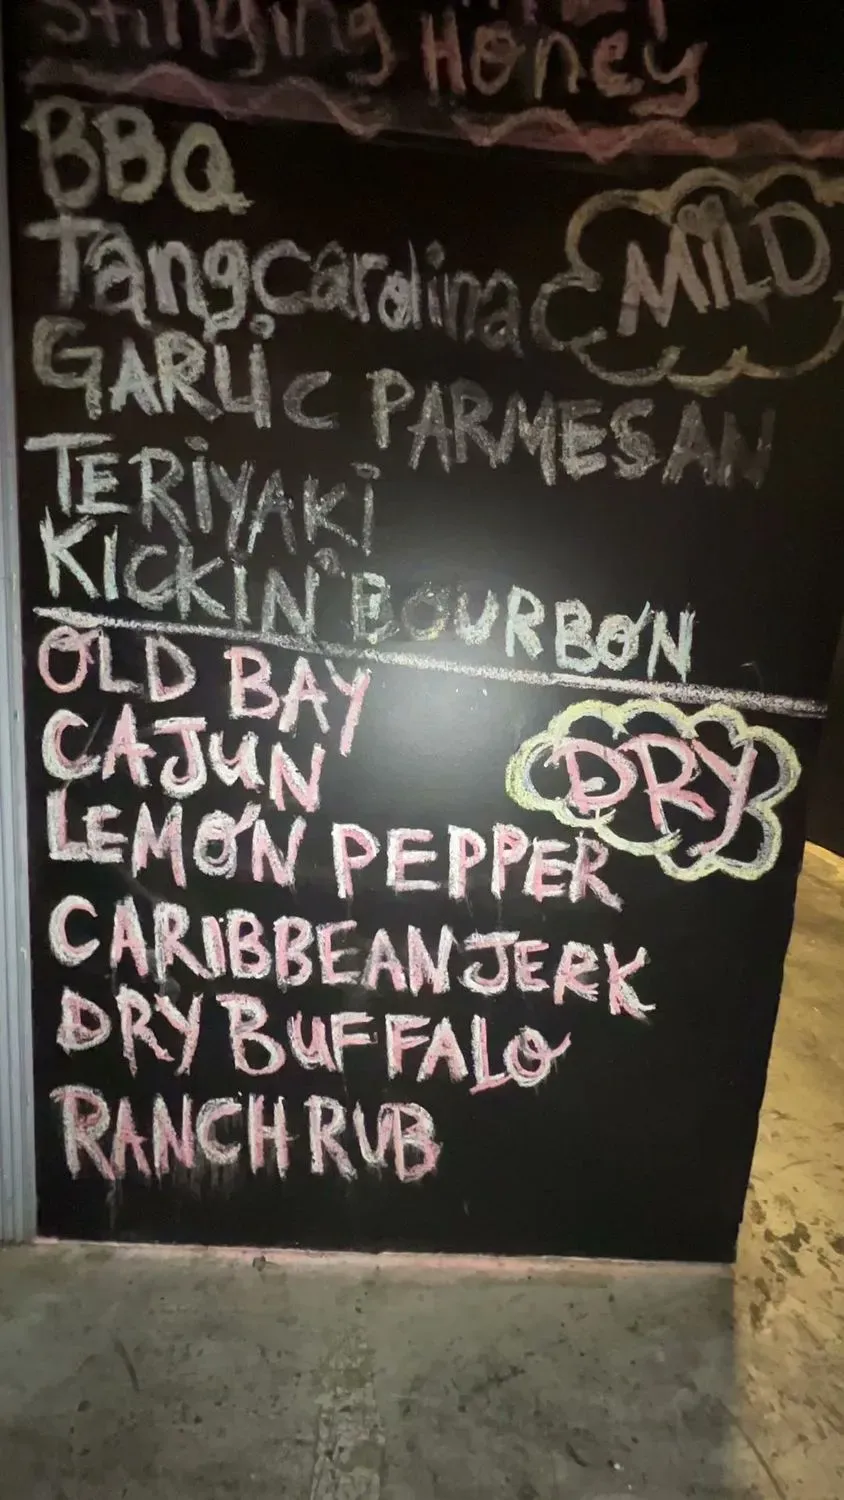 Stinging Honey
BBQ
Tangcarolina
MiLD
GARLiC PARMESAN
TERiYAKi
KICKIN' BOURBON
OLD BAY
CAJUN
DRY
LEMON PEPPER
CARIBBEAN JERK
DRY BUFFALO
RANCH RUB